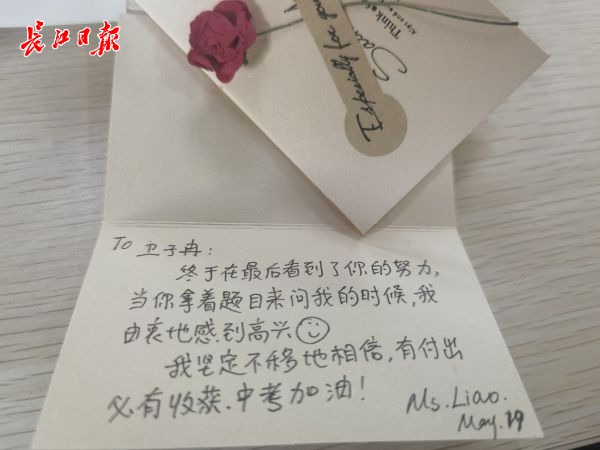 长江日报
Especially for you
Think
To 卫子冉:
终于在最后看到了你的努力,
当你拿着题目来问我的时候,我
由衷地感到高兴
我坚定不移地相信,有付出
必有收获.中考加油!
Ms. Liao.
May. 19